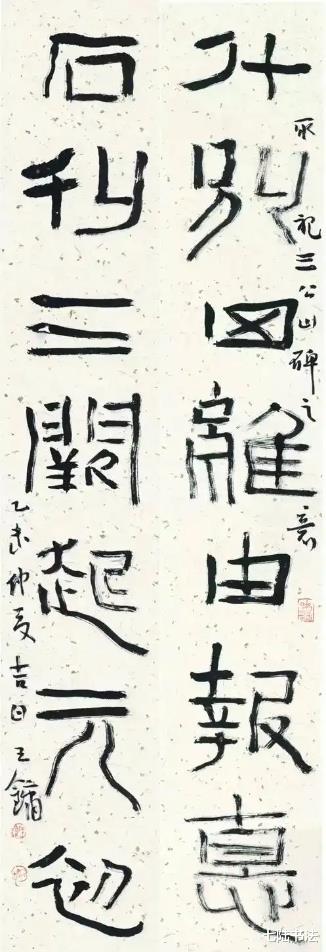 什別四離由報悳
取祀三公山碑之意
石刊三闕起元初
乙未仲夏吉日王鏞
七陆书法